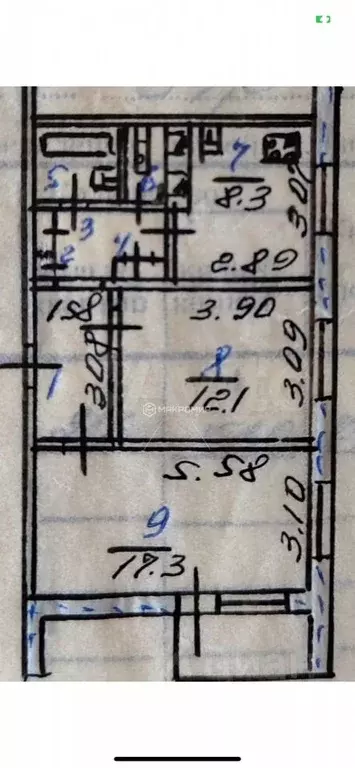 5
6
7
8.3
3.07
3
2
4
2.89
1.58
3.90
1
3.08
8
12.1
3.09
МАКРОМИР
5.58
9
17.3
3.10